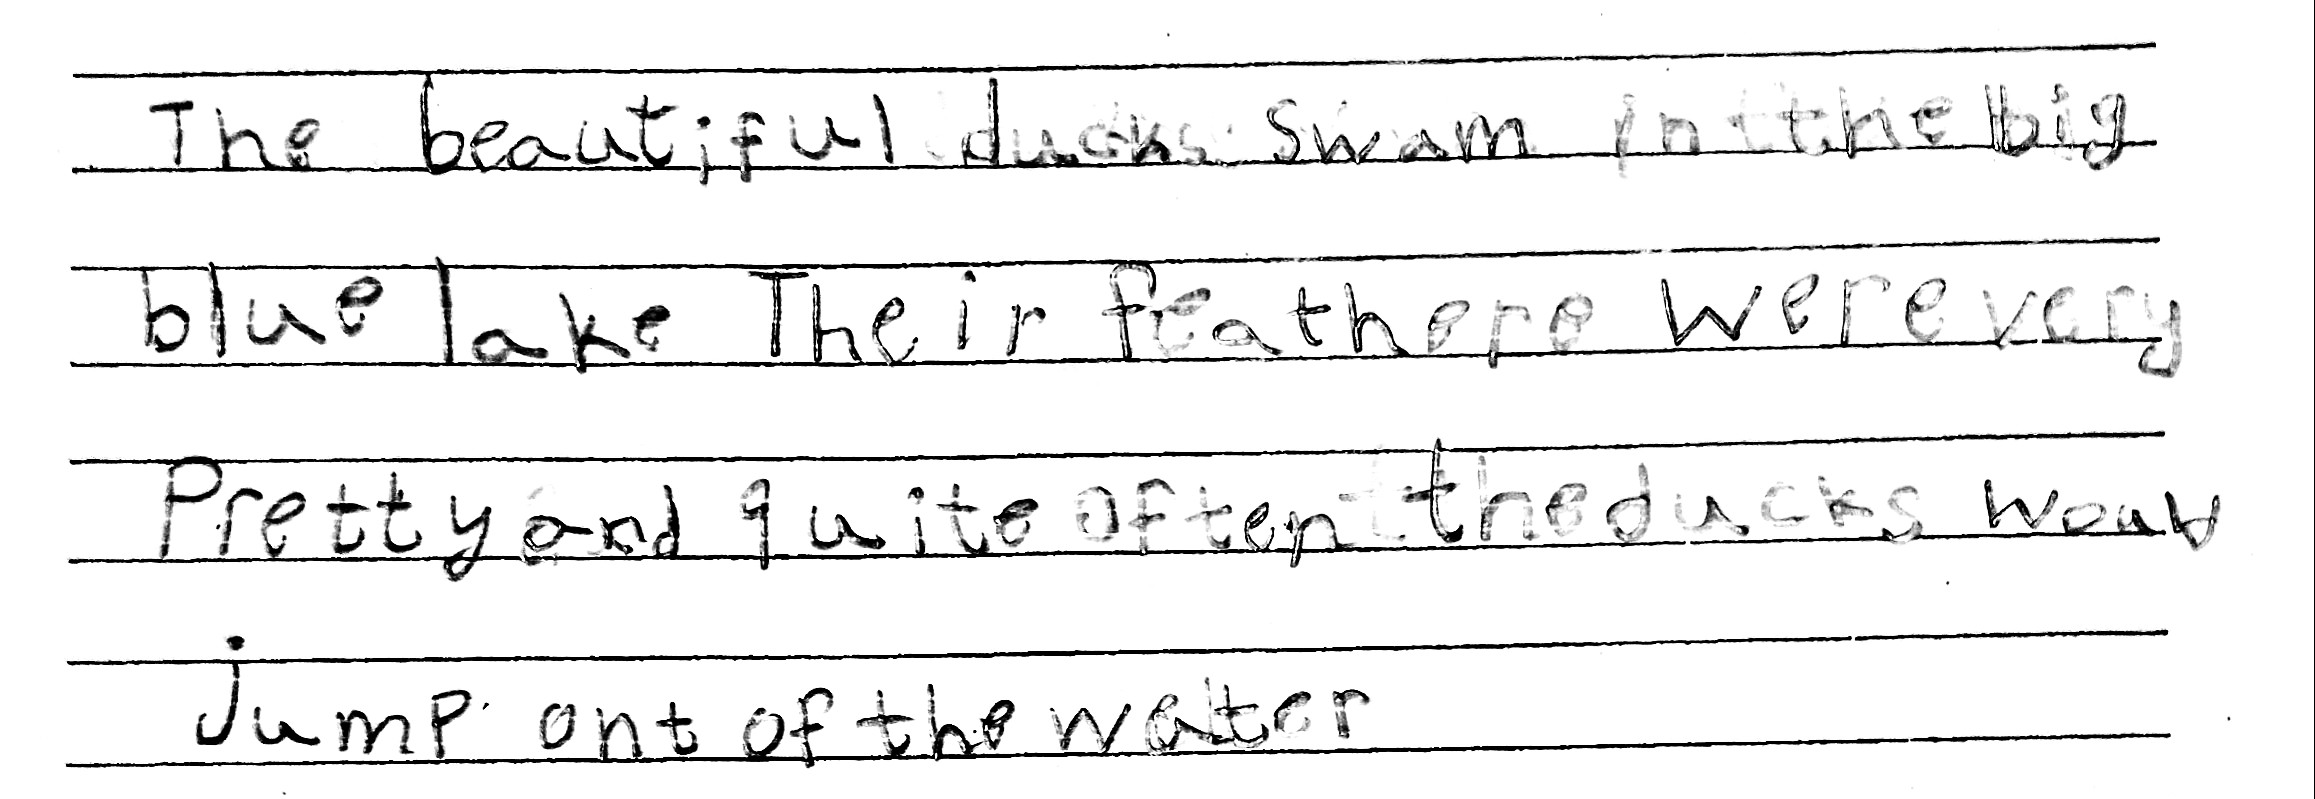 The beautiful ducks swam in the big
blue lake Their feathere were very
Pretty and quite often the ducks woud
jump ont of the water